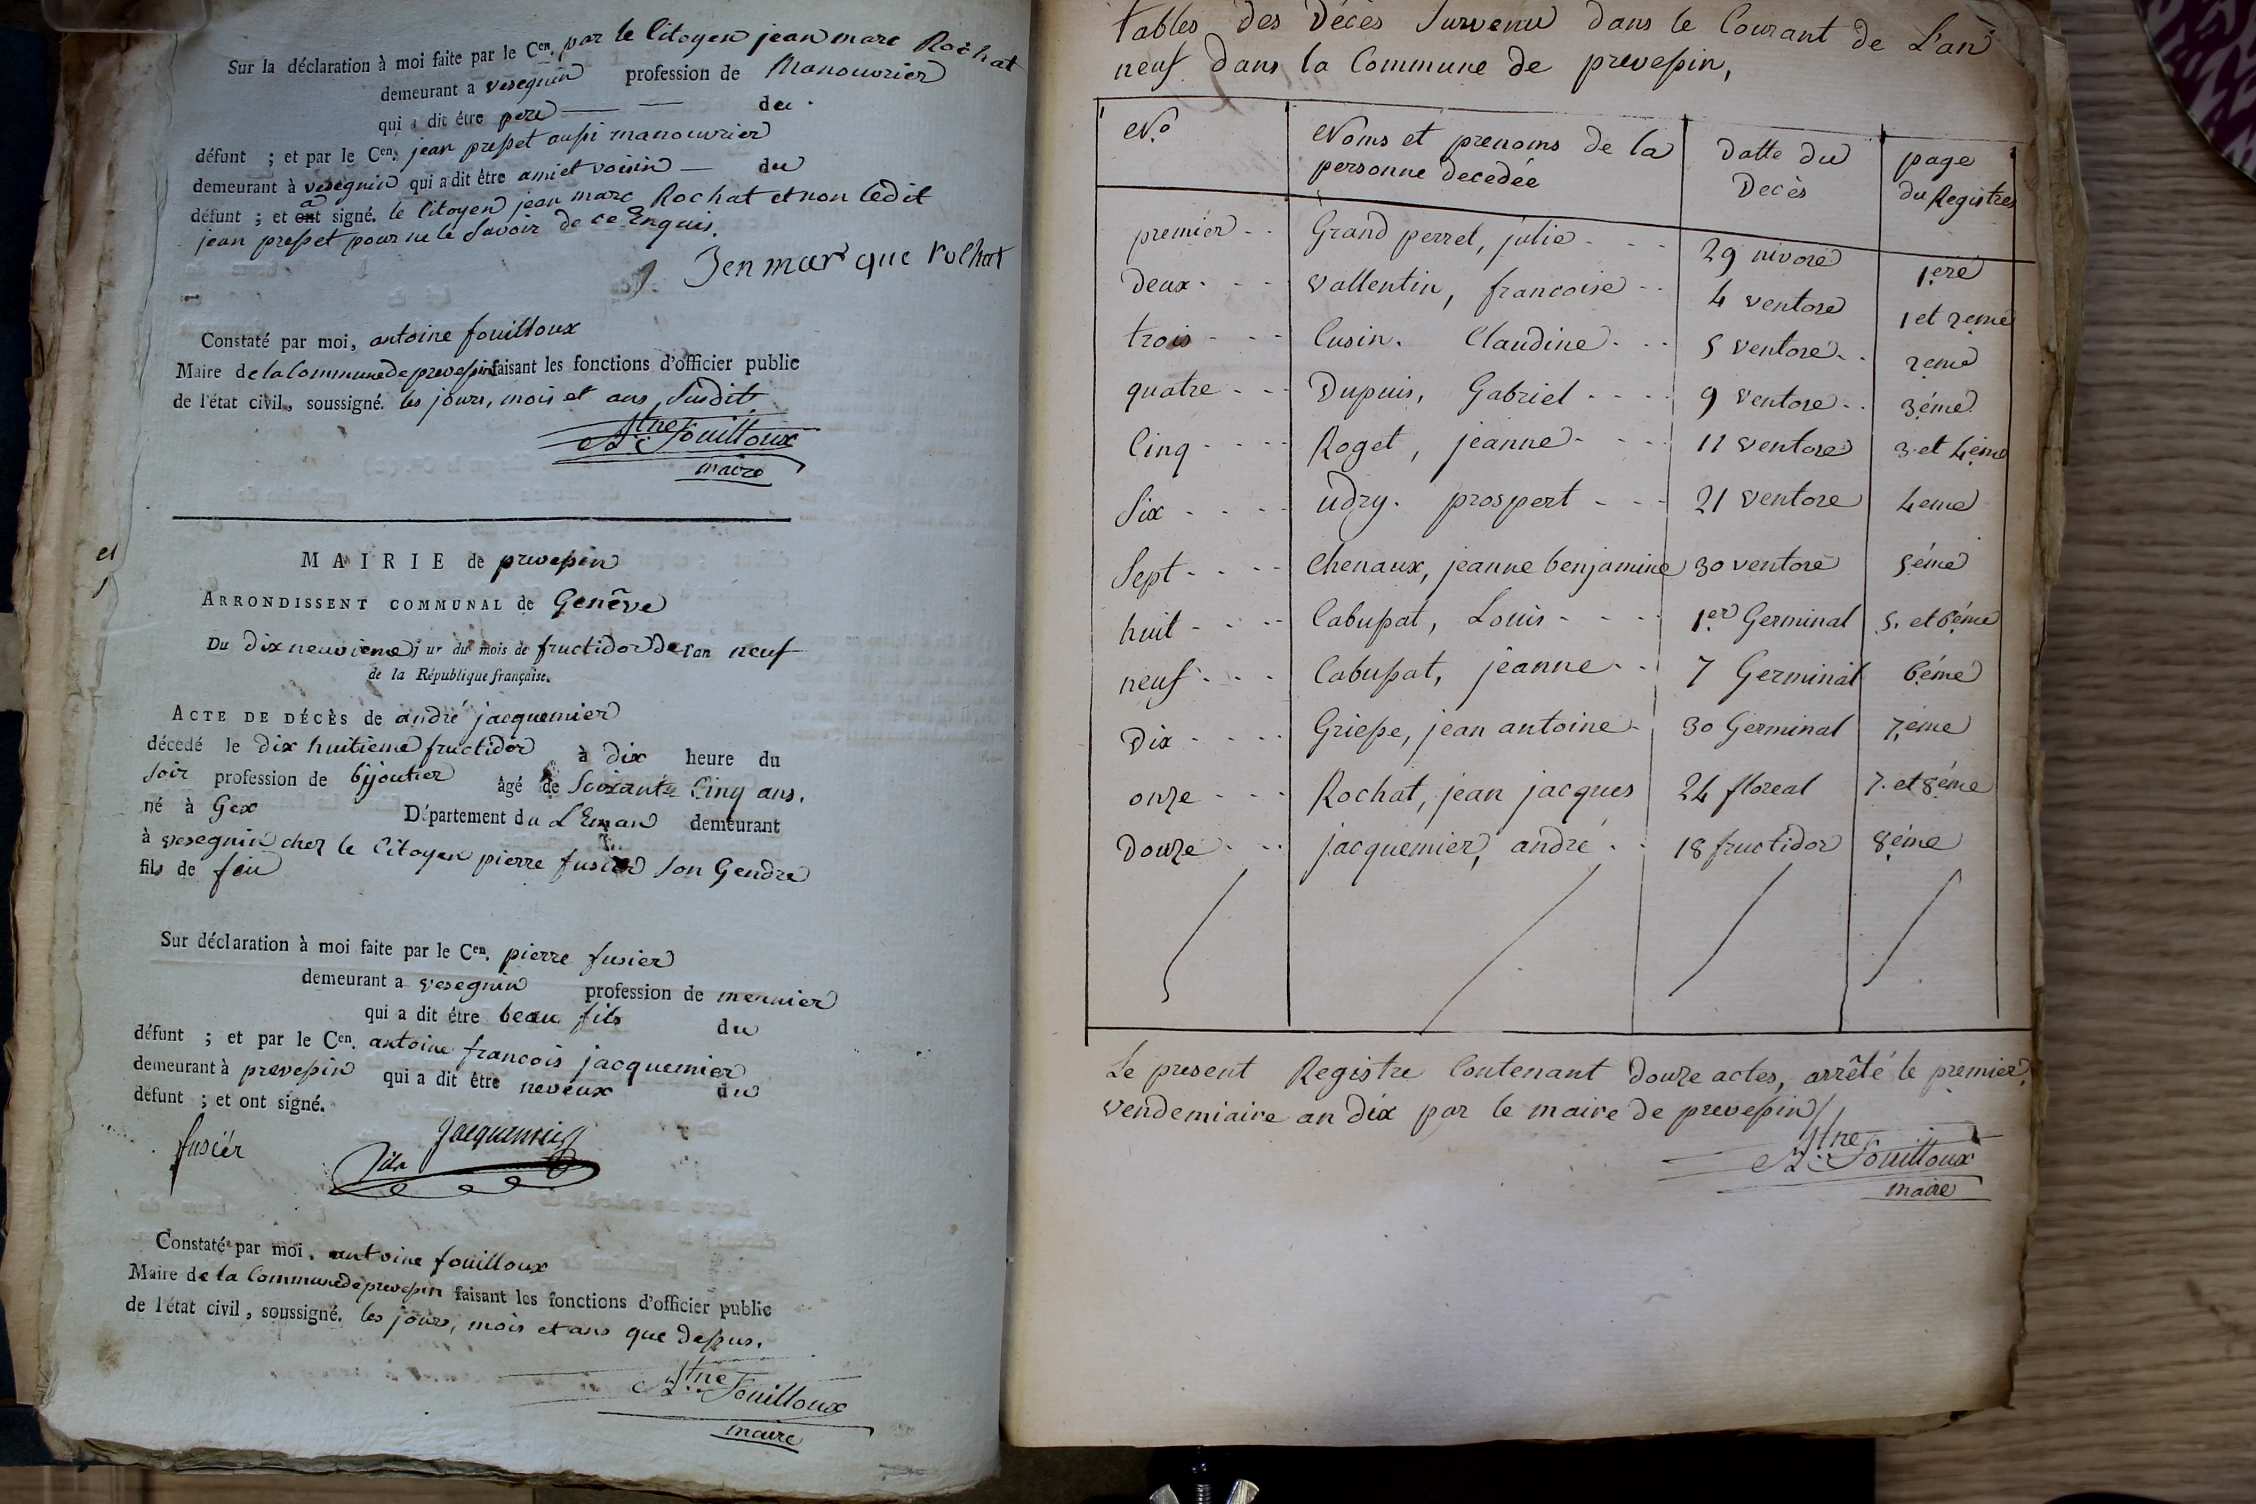 Sur la déclaration à moi faite par le Cen. par le Citoyen jean marc Rochat
demeurant a vesegnin profession de Manouvrier
qui a dit être pere du
défunt ; et par le Cen. jean presset aussi manouvrier
demeurant à vesegnin qui a dit être ami et voisin du
défunt ; et ont a signé. le Citoyen jean marc Rochat et non ledit
jean presset pour ne le Savoir de ce Enquis.
Jen mar que rochat
Constaté par moi, antoine fouilloux
Maire de la Commune de prevessin faisant les fonctions d'officier public
de l'état civil, soussigné. les jours, mois et ans, Susdits
Atne Fouilloux
maire
et
MAIRIE de prevessin
ARRONDISSENT COMMUNAL de Genêve
Du dix neuvieme jur du mois de fructidor De l'an neuf
de la République française.
ACTE DE DÉCÈS de andré jacquemier
décedé le dix huitieme fructidor à dix heure du
soir profession de bijoutier âgé de Soixante Cinq ans.
né à Gex Département du L'Eman demeurant
à vesegnin chez le Citoyen pierre fusier son Gendre
fils de feu
Sur déclaration à moi faite par le Cen. pierre fusier
demeurant a vesegnin profession de meunier
qui a dit être beau fils du
défunt ; et par le Cen. antoine francois jacquemier
demeurant à prevessin qui a dit être neveux du
défunt ; et ont signé.
fusiér Jacquemier
fils
Constaté par moi. antoine fouilloux
Maire de la Commune de prevessin faisant les fonctions d'officier public
de l'état civil, soussigné. les jours, mois et ans que dessus.
Atne Fouilloux
maire
tables des Décès Survenu dans le Courant de L'an
neuf dans la Commune de prevessin,
No Noms et prenoms de la personne decedée Datte du Decès page du Registres
premier Grand perret, julie 29 nivose 1ere
deux vallentin, francoise 4 ventose 1 et 2eme
trois Cusin. Claudine 5 ventose 2eme
quatre Dupuis, Gabriel 9 ventose 3éme
Cinq Roget, jeanne 11 ventose 3 et 4éme
Six udry. prospert 21 ventose 4eme
Sept Chenaux, jeanne benjamine 30 ventose 5éme
huit Cabussat, Louis 1er Germinal 5. et 6éme
neuf Cabussat, jeanne 7 Germinal 6éme
Dix Griesse, jean antoine 30 Germinal 7,éme
onze Rochat, jean jacques 24 floreal 7. et 8éme
Douze jacquemier, andré 18 fructidor 8éme
Le present Registre Contenant Douze actes, arrêté le premier
vendemiaire an dix par le maire de prevessin
Atne Fouilloux
maire